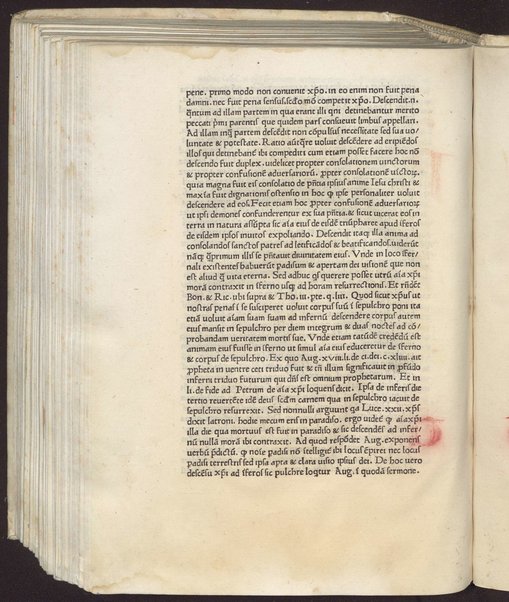 pene. primo modo non convenit xp̄o. in eo enim non fuit pena
damni. nec fuit pena sensus. scd̄o mō competit xp̄o. Descendit .n.
qn̄tum ad illam partem in qua erant illi qui detinebantur merito
peccati p̄mi parentis que quidem pars consuevit limbus appellari.
Ad illam inq̄ partem descēdit non cōpulsus necessitate sed sua vo/
luntate & potestate. Ratio autq̄re voluit descēdere ad eripiēdos
illos qui detinebant̄ ibi compediti cum etiam posset facere hoc nō
descendo fuit duplex. videlicet propter consolationem vinctorum
& propter confusionē adversariorū. ꝓpter consolationē victoꝝ.
quia magna fuit eis consolatio de pn̄tia ipsius anime Iesu christi &
maxīa fuit dignationis ostensio in hoc ꝙ ipse personaliter voluit
descendere ad eos. Fecit etiam hoc ꝓpter confusionē adversarioꝝ
ut ipsi demones confunderentur ex sua pn̄tia. & sicut vicerat eos in
terra in natura assūpta sic aīa eius de eisdē triūpharet apud īferos
de eisdem ipsos invitos expoliando. Descendit itaq̄ illa anima ad
consolandos sanctos patres ad letificādos & beatificandos. viderūt
nāq̄ quam primum illi se pn̄tavit divinitatem eius. Unde in loco īfer/
nali existentes habuerūt padisum & apertam dei visionē que non
est aliud q̄ vita eterna. Sed adhuc q̄s querere posset utrū aīa xp̄i
morā contraxit in īferno usq̄ ad horam resurrectionis. Et rn̄det
Bon. & Ric. ubi supra & Tho. iii. pte. q. lii. Quod sicut xp̄us ut
nostras penas ī se susciperet voluit corpus suū ī sepulchro poni ita
etiā voluit aīam suam ad infernū descendere corpus autem
eius mansit in sepulchro per diem integrum & duas noctes ad cō/
probandam veritatem mortis sue. Unde etiam tātūdē credēdū est
animam eius fuisse in īferno ut simul aīa eius educeretur de īferno
& corpus de sepulchro. Ex quo Aug. xviii. li. de ci. dei. c. xliiii. ait
ꝓpheta in ventre ceti triduo fuit & tn̄ illum significavit in ꝓfūdo
inferni triduo futurum qui dn̄s est omnium prophetarum. Et in
li. de fide ad Petrum de aīa xp̄i loquens dicit. Ipsa de inferis die
tertio revertēte idē deus scd̄m carnem qua in sepulchro iacuit de
sepulchro resurrexit. Sed nonnulli arguunt qa Luce. xxii. xp̄s
doxit latroni. hodie mecum eris in paradiso. ergo videt̄ ꝙ aīa xp̄i
illa die qua mortuus est fuit in paradiso & sic descendēs ad infer/
nū nullā morā ibi contraxit. Ad quod respōdet Aug. exponens
verbū p̄dictū. ꝙ nose padisi nō ītelligit̄ ibi locus ēpirei nec locus
padisi terrestris sed ipsa apta & clara visio ipsius dei. De hoc vero
descēsu xp̄i ad īferos sic pulchre loqtur Aug. ī quodā sermone.